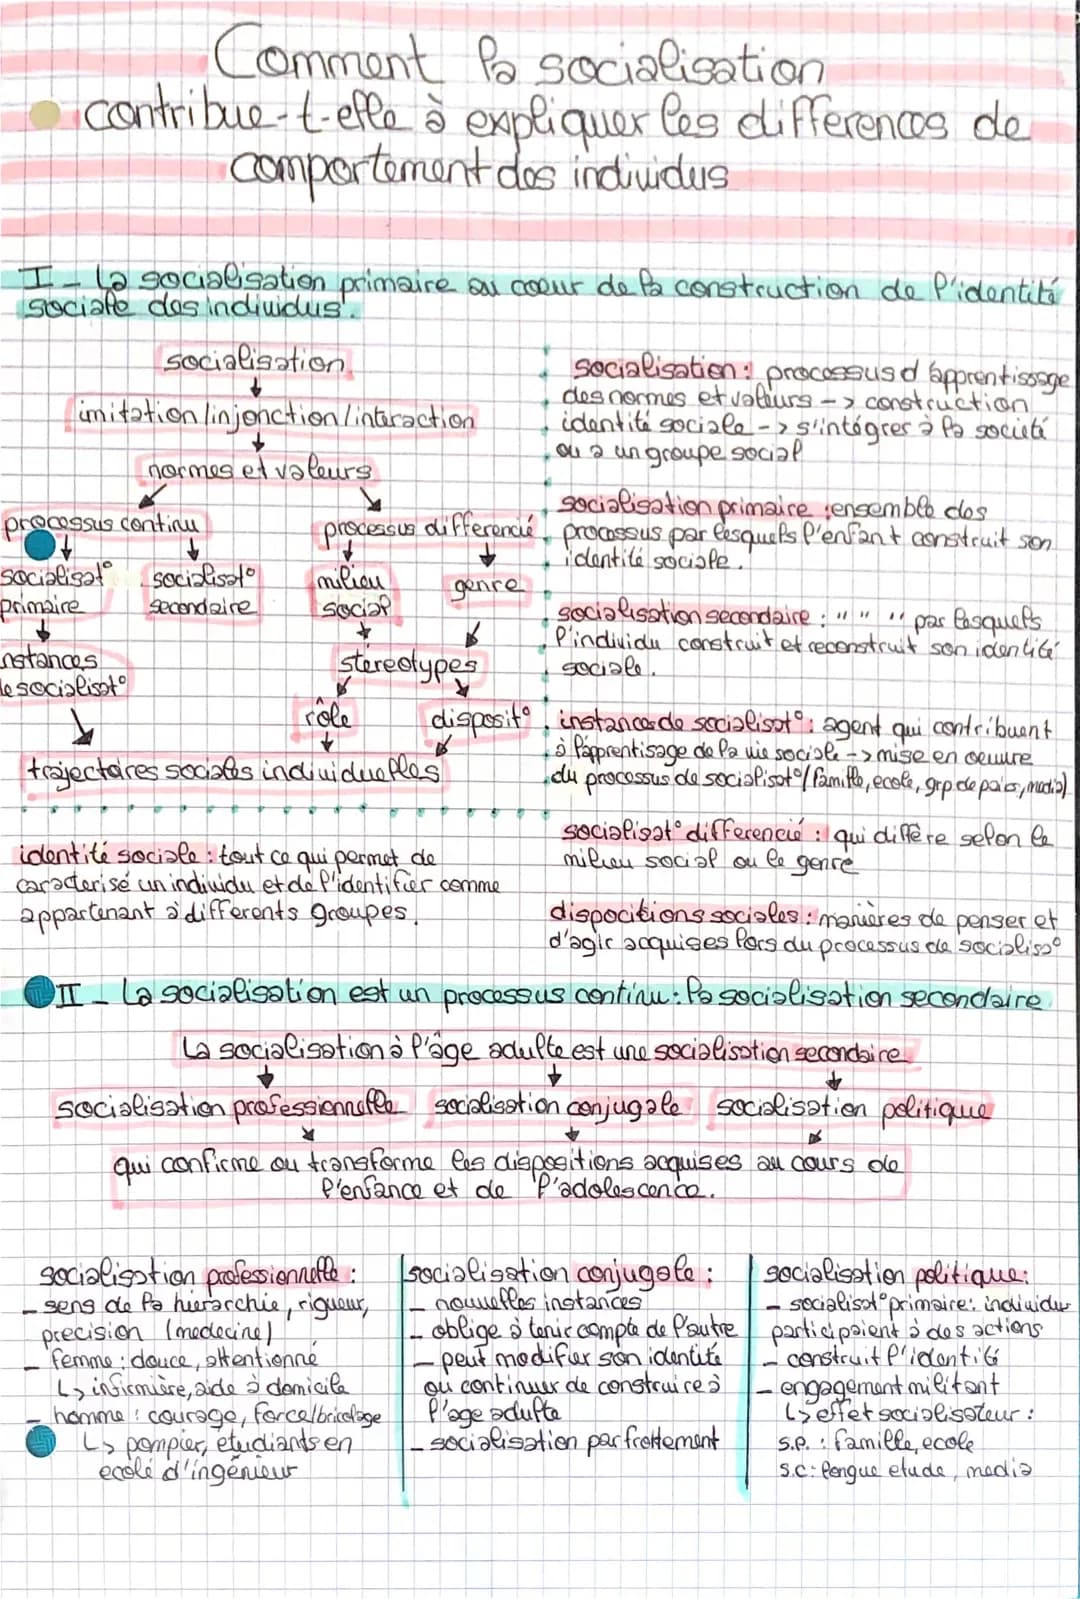 Comment la socialisation
contribue-t-elle à expliquer les differences de
comportement des individus
I - la socialisation primaire au coeur de la construction de l'identité
sociale des individus.
socialisation
imitation/injonction/interaction
normes et valeurs
processus continu
processus differencié
socialisat° primaire
socialisat° secondaire
milieu social
genre
nstances
de socialisat°
stéreotypes
rôle
disposit°
trajectoires sociales individuelles
identité sociale : tout ce qui permet de
caracterisé un individu et de l'identifier comme
appartenant à differents groupes.
socialisation : processus d'apprentissage
des normes et valeurs -> construction
identité sociale -> s'intégrer à la societé
ou a un groupe social
socialisation primaire : ensemble des
processus par lesquels l'enfant construit son
identité sociale.
socialisation secondaire : " " " par lesquels
l'individu construit et reconstruit son identité
sociale.
instances de socialisat° : agent qui contribuent
à l'apprentisage de la vie sociale -> mise en oeuvre
du processus de socialisat° (famille, ecole, grp de pairs, media)
socialisat° differencié : qui diffère selon le
milieu social ou le genre
dispocitions sociales : manières de penser et
d'agir acquises lors du processus de socialisa°
II - La socialisation est un processus continu : la socialisation secondaire
La socialisation à l'âge adulte est une socialisation secondaire
socialisation professionnelle socialisation conjugale socialisation politique
qui confirme ou transforme les dispositions acquises au cours de
l'enfance et de l'adolescence.
socialisation professionnelle :
- sens de la hierarchie, rigueur,
precision (medecine)
- femme : douce, attentionné
↳ infirmière, aide à domicile
- homme : courage, force/bricolage
↳ pompier, etudiants en
ecole d'ingénieur
socialisation conjugale :
- nouvelles instances
- oblige à tenir compte de l'autre
- peut modifier son identité
ou continuer de construire à
l'age adulte
- socialisation par frottement
socialisation politique :
- socialisat° primaire : individus
participaient à des actions
- construit l'identité
- engagement militant
↳ effet socialisateur :
s.p. : famille, ecole
s.c : longue etude, media